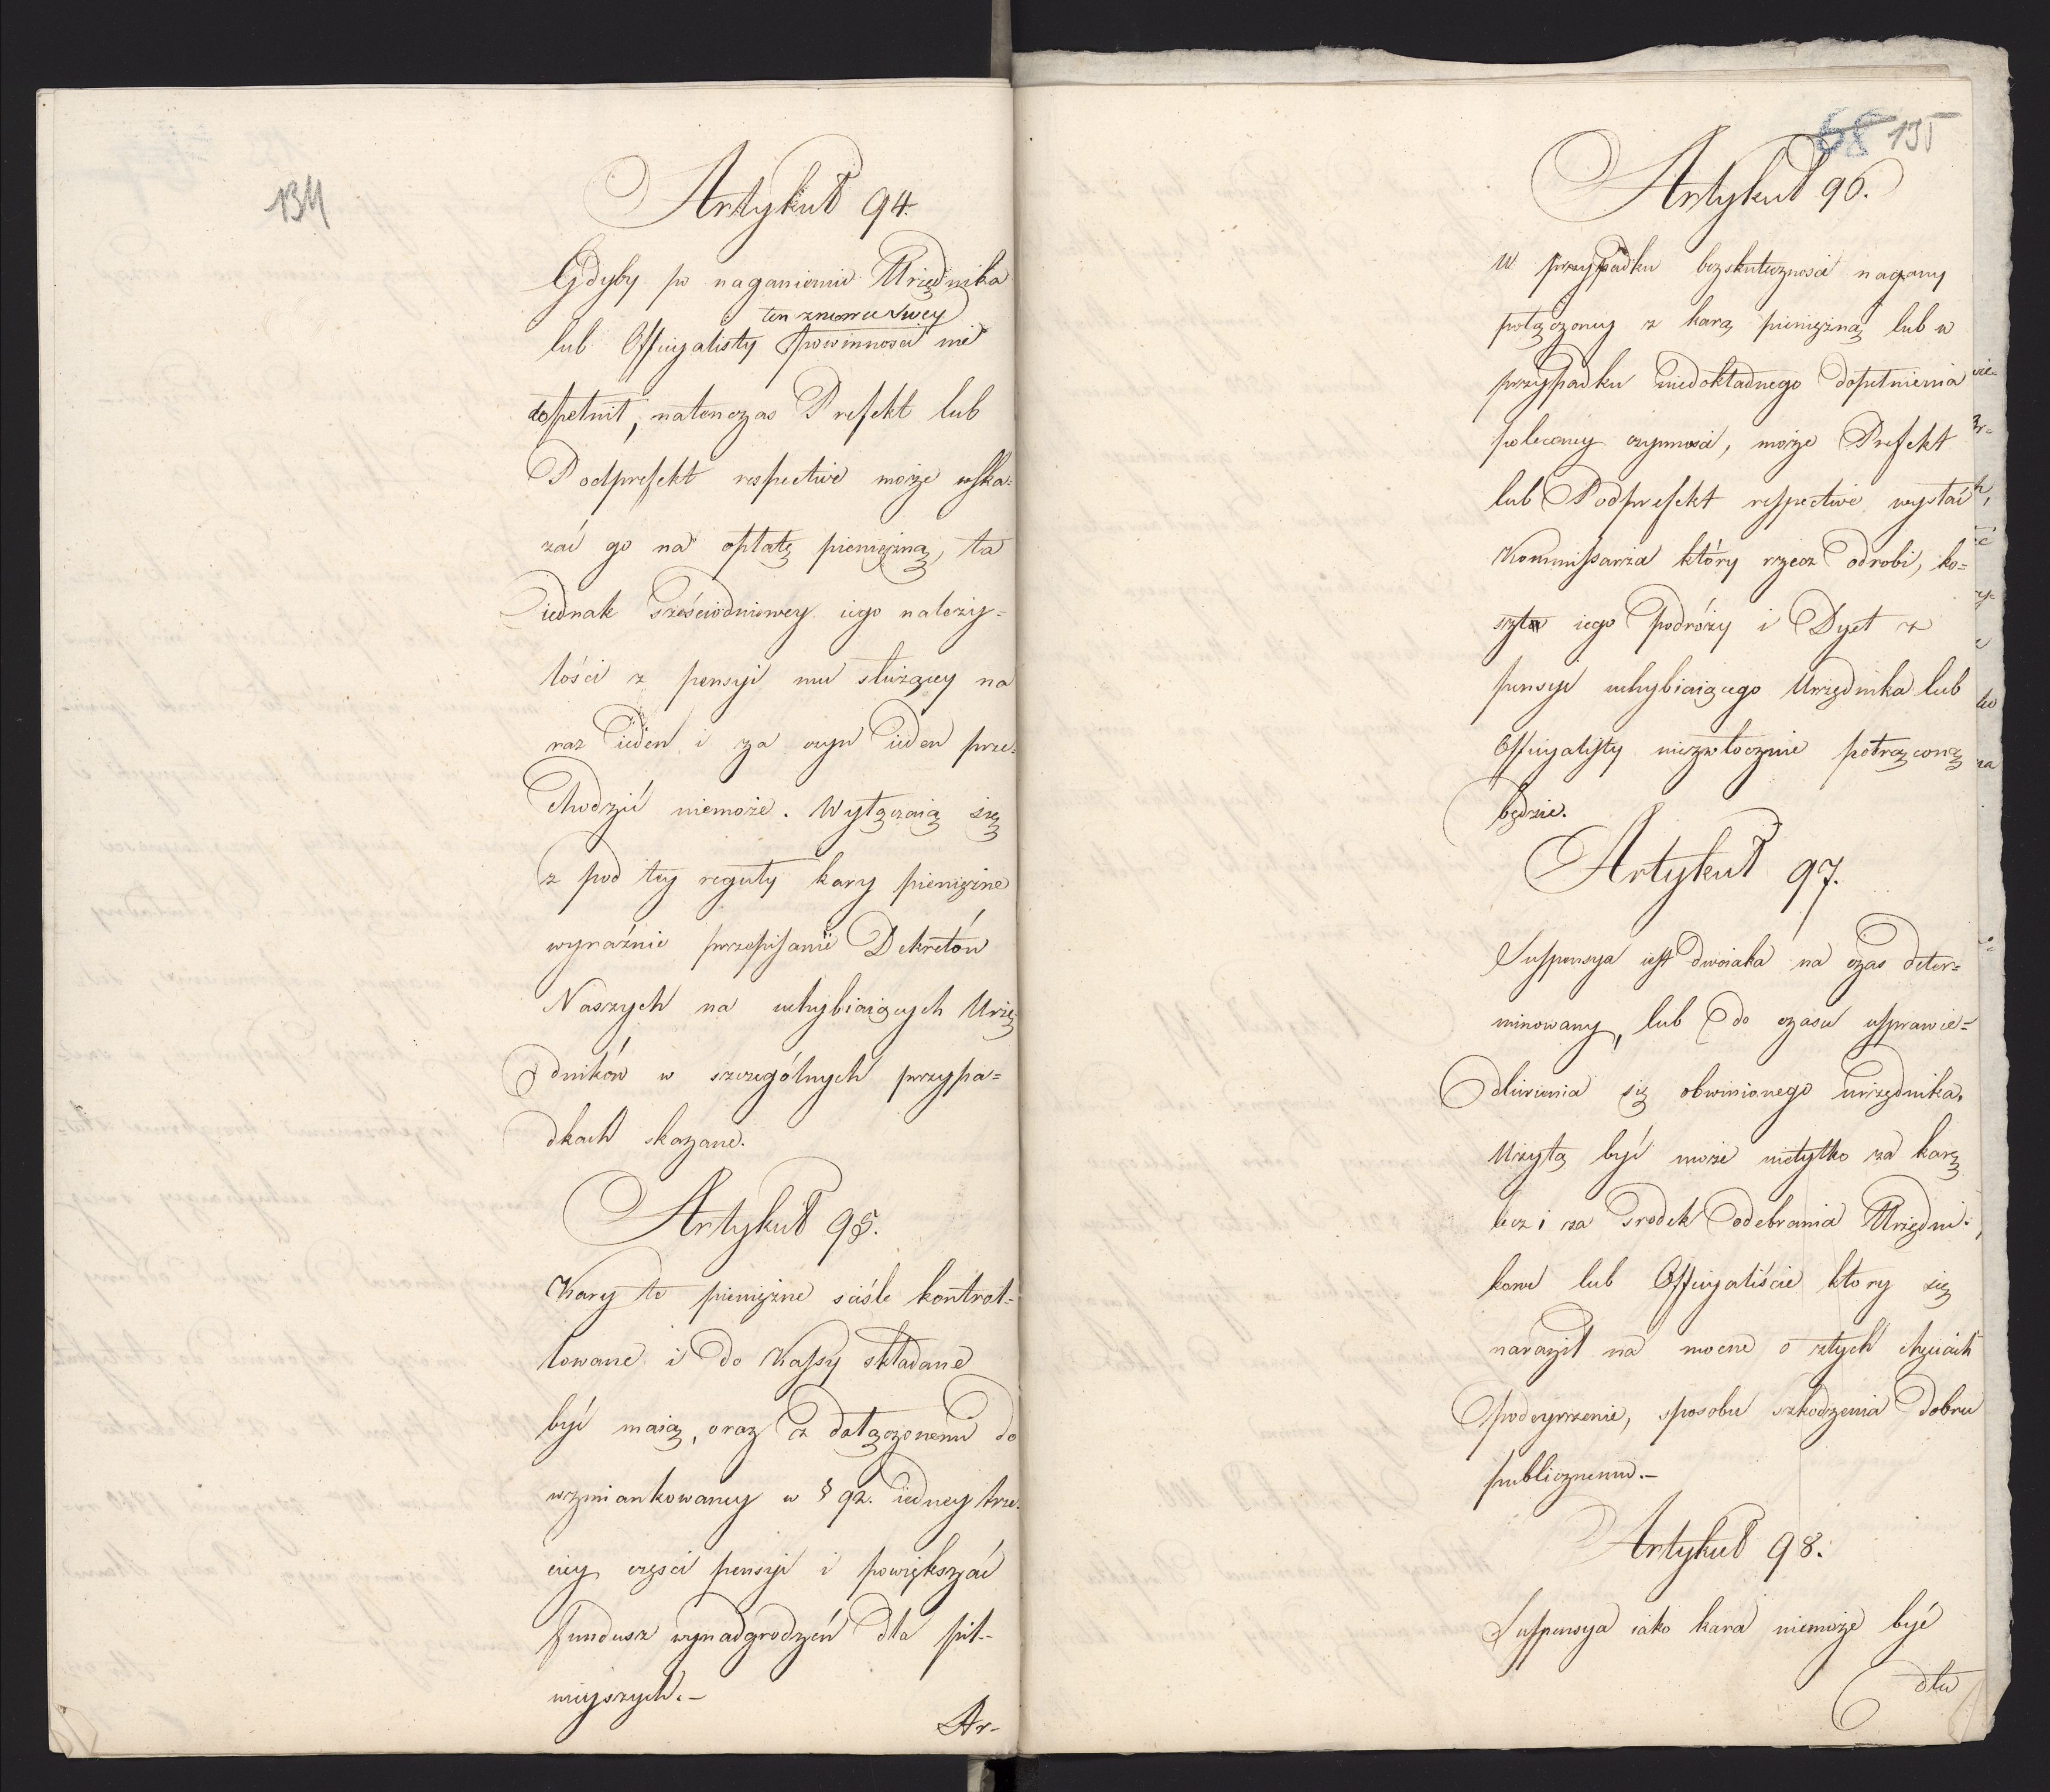 134
Artykuł 94.
Gdyby po naganieniu Urzędnika
ten znowu swey
lub Officyalisty powinności nie
dopełnił, natenczas Prefekt lub
Podprefekt respective może wska-
zać go na opłatę pieniężną, ta
iednak sześciodniowey iego należy-
tości z pensyi mu służącey na
raz ieden i za czyn ieden prze-
chodzić niemoże. Wyłączaią się
z pod tey reguły kary pieniężne
wyraźnie przepisami Dekretów
Naszych na uchybiaiących Urzę
dników w szczególnych przypa=
dkach skazane.
Artykuł 95.
Kary te pieniężne ściśle kontrol-
lowane i do Kassy składane
być maią, oraz z dołączonemu do
wzmiankowaney w § 92. iedney trze-
ciey części pensyi i powiększać
fundusz wynadgrodzeń dla pil-
nieyszych.-
Ar-
68 135
Artykuł 96.
W przypadku bezskuteczności nagany
połączoney z karą pieniężną lub w
przypadku niedokładnego dopełnienia
poleconey czynności, może Prefekt
lub Podprefekt respective wysłać
Kommissarza który rzecz odrobi, ko=
szta iego podróży i Dyet z
pensyi uchybiaiącego Urzędnika lub
Officyalisty niezwłocznie potrąconą
będzie.
Artykuł 97.
Suspensya iest dwoiaka na czas deter=
minowany, lub do czasu usprawie=
dliwienia się obwinionego urzędnika.
Użytą być może nietylko za karę
lecz i za srodek odebrania Urzędni-
kowi lub Officyaliście który się
naraził na mocne o złych chęciach
podeyrzenie, sposobu szkodzenia dobru
publicznemu.-
Artykuł 98.
Suspensya iako kara niemoże być
dłu